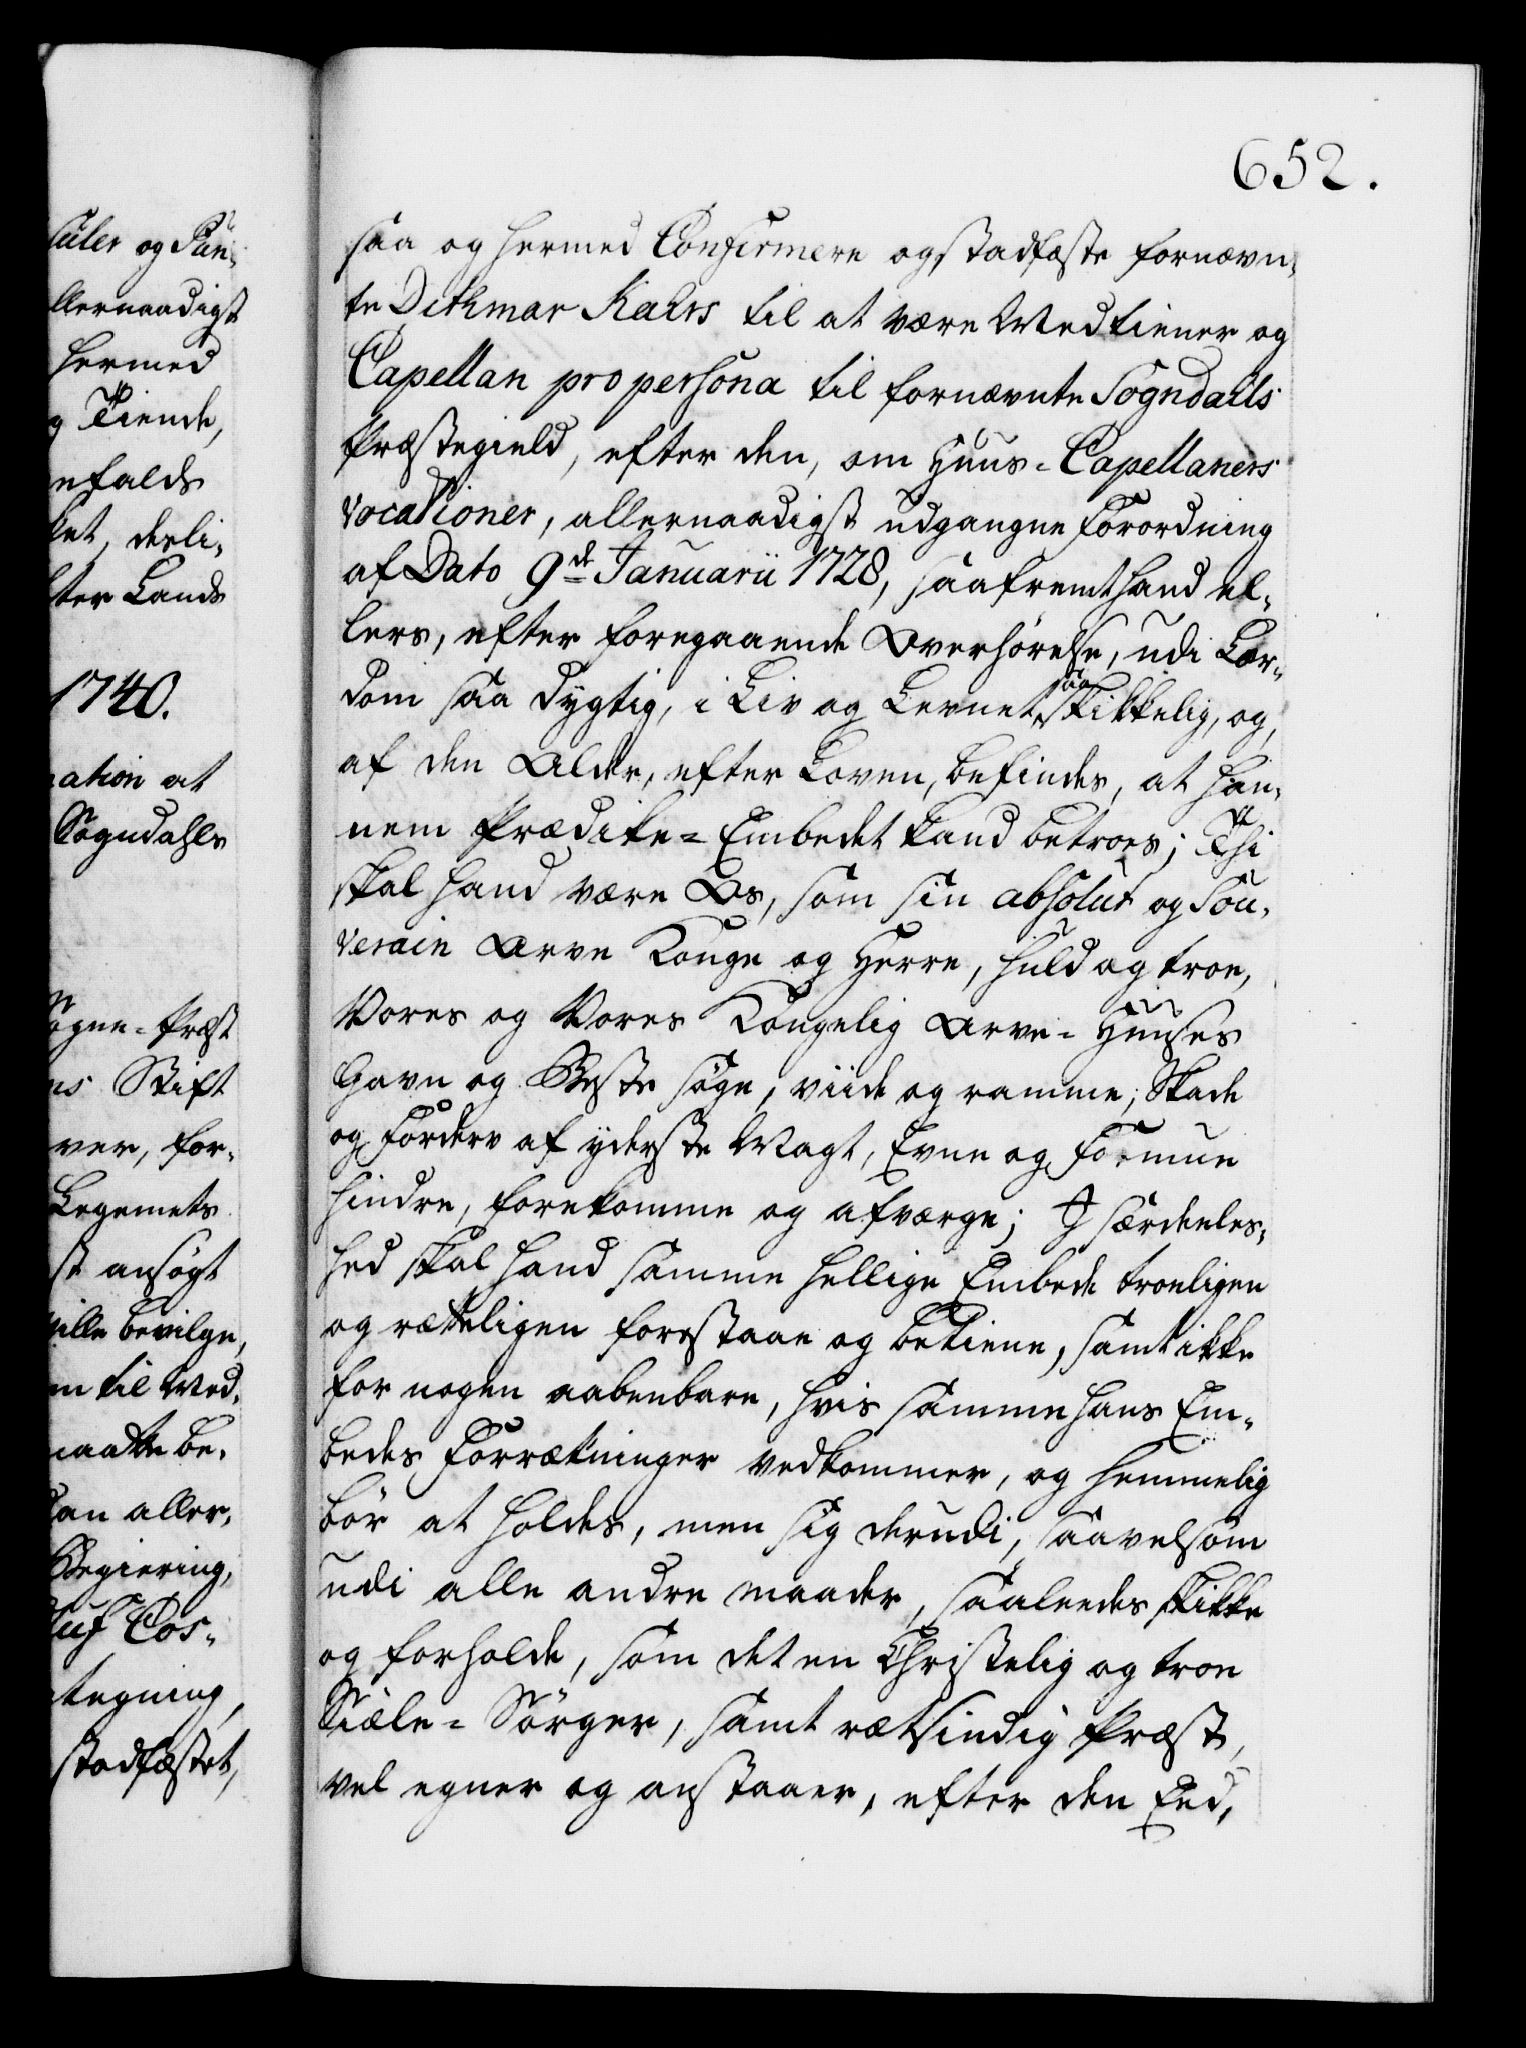 652.
süler og Pün-
llernaadigst
hermed
g Tiende,
nfalds
ket, desli-
ter Lands
1740.
nation at
Sogndahls
ogne-Præst
ns Stift
ver, for-
Legemets
st ansøgt
ville bevilge,
m til Med-
maatte be-
kan aller-
Begiering,
luf Cos-
ategning,
stadfæstet,
saa og hermed Confirmere og stadfæste fornævn-
te Dithmar Kahrs til at være Medtiener og
Capellan pro persona til fornævnte Sogndahls
Præstegield, efter den, om Huus-Capellaners
Vocationer, allernaadigst udgangne Forordning
af Dato 9de Januarii 1728, saafremt hand el-
lers, efter foregaaende Overhørelse, udi Lær-
dom saa dygtig, i Liv og Levnet saa skikkelig, og,
af den Alder, efter Loven, befindes, at han-
nem Prædike-Embedet kand betroes; Thi
skal hand være Os, som sin absolut og Sou-
verain Arve Konge og Herre, huld og troe,
Vores og Vores Kongelig Arve-Huuses
Gavn og Beste søge, viide og ramme, Skade
og Forderv af yderste Magt, Evne og Formue
hindre, forekomme og afværge; I særdeeles-
hed skal hand samme hellige Embede troeligen
og rætteligen forestaae og betiene, samt ikke
for nogen aabenbare, hvis samme hans Em-
bedes Forrætninger vedkommer, og hemmelig
bør at holdes, men sig derudi, saavelsom
udi alle andre maader, saaleedes skikke
og forholde, som det en Christelig og troe
Siæle-Sørger, samt rætsindig Præst,
vel egner og anstaaer, efter den Eed,